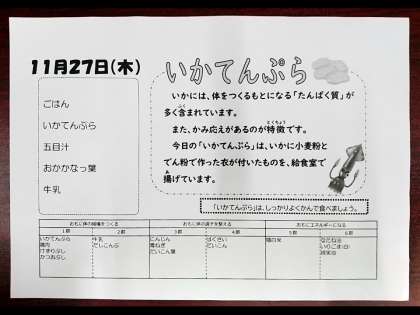 11月27日(木)
いかてんぷら
ごはん
いかてんぷら
五目汁
おかかなっ葉
牛乳
いかには、体をつくるもとになる「たんぱく質」が
多く含まれています。
また、かみ応えがあるのが特徴です。
今日の「いかてんぷら」は、いかに小麦粉と
でん粉で作った衣が付いたものを、給食室で
揚げています。
「いかてんぷら」は、しっかりよくかんで食べましょう。
おもに体の組織をつくる おもに体の調子を整える おもにエネルギーになる
1群 2群 3群 4群 5群 6群
いかてんぷら 牛乳 にんじん はくさい 精白米 なたね油
鶏肉 だしこんぶ 青ねぎ だいこん いりごま(白)
けずりぶし だいこん葉
かつおぶし